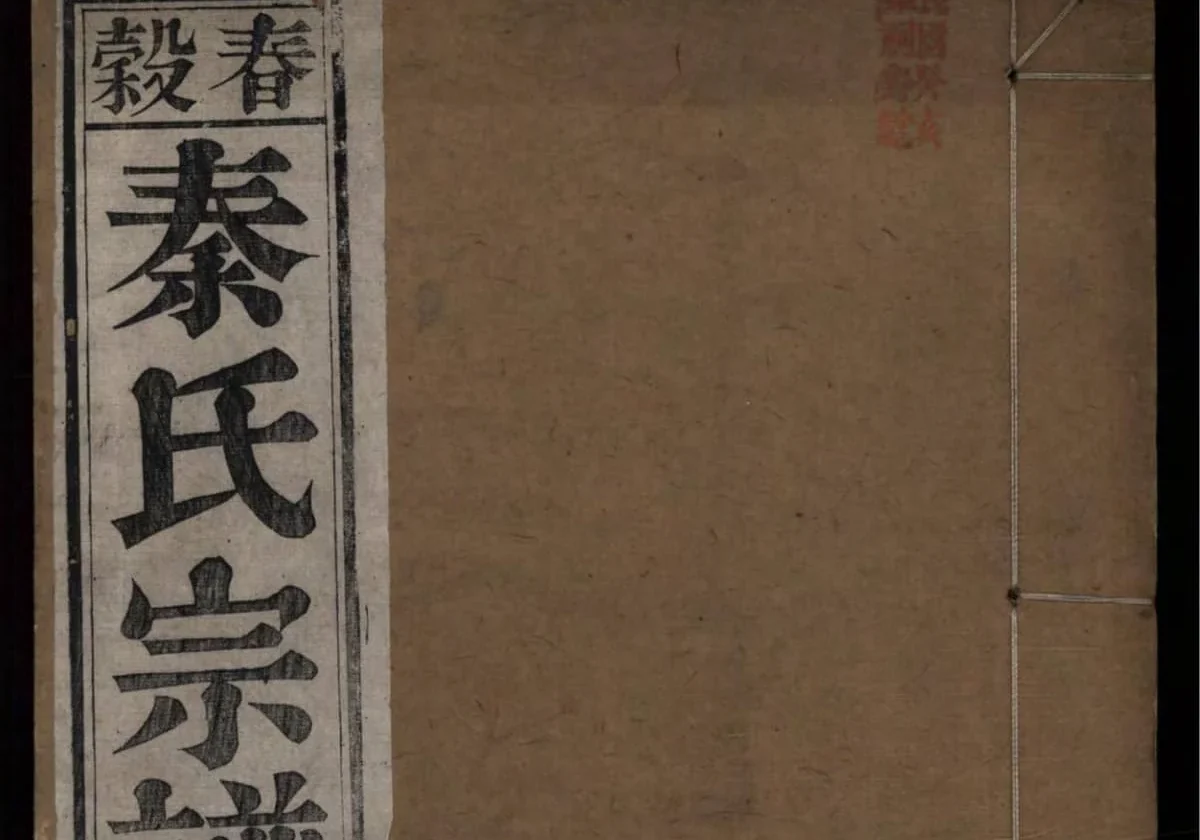 春穀
秦氏宗譜